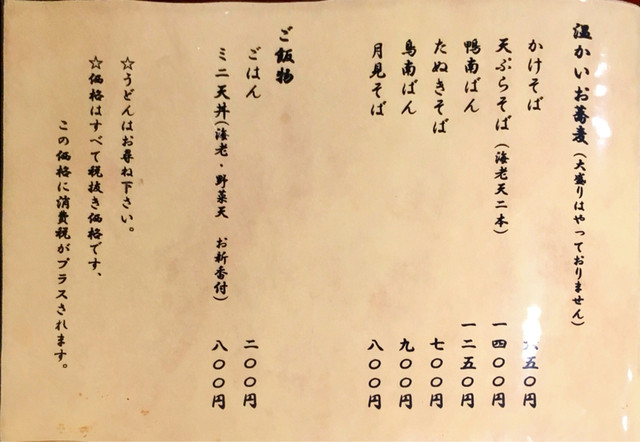 温かいお蕎麦(大盛りはやっておりません)
かけそば 六五〇円
天ぷらそば(海老天二本) 一四〇〇円
鴨南ばん 一二五〇円
たぬきそば 七〇〇円
鳥南ばん 九〇〇円
月見そば 八〇〇円
ご飯物
ごはん 二〇〇円
ミニ天丼(海老・野菜天 お新香付) 八〇〇円
☆うどんはお尋ね下さい。
☆価格はすべて税抜き価格です、
この価格に消費税がプラスされます。